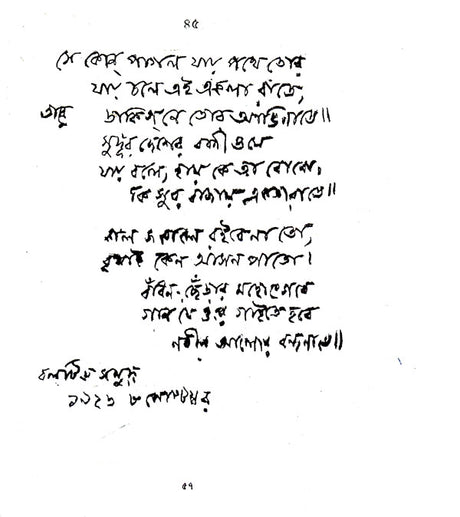 ৪৫
সে কোন্ পাগল যায় পথে তোর
যায় চলে ঐ একলা রাতে,
তারে ডাকিস্‌নে তোর আঙিনাতে॥
সুদূর দেশের বাণী ও যে
যায় বলে, হায় কে তা বোঝে,
কি সুর বাজায় একতারাতে॥
কাল সকালে রইবে না তো,
বৃথাই কেন আসন পাতো।
বাঁধন-ছেঁড়ার মহোৎসবে
গান যে ওরে গাইতে হবে
নবীন আলোর বন্দনাতে॥
বলটিক সমুদ্র
১৯২৬ ৮ সেপ্টেম্বর
৫৭